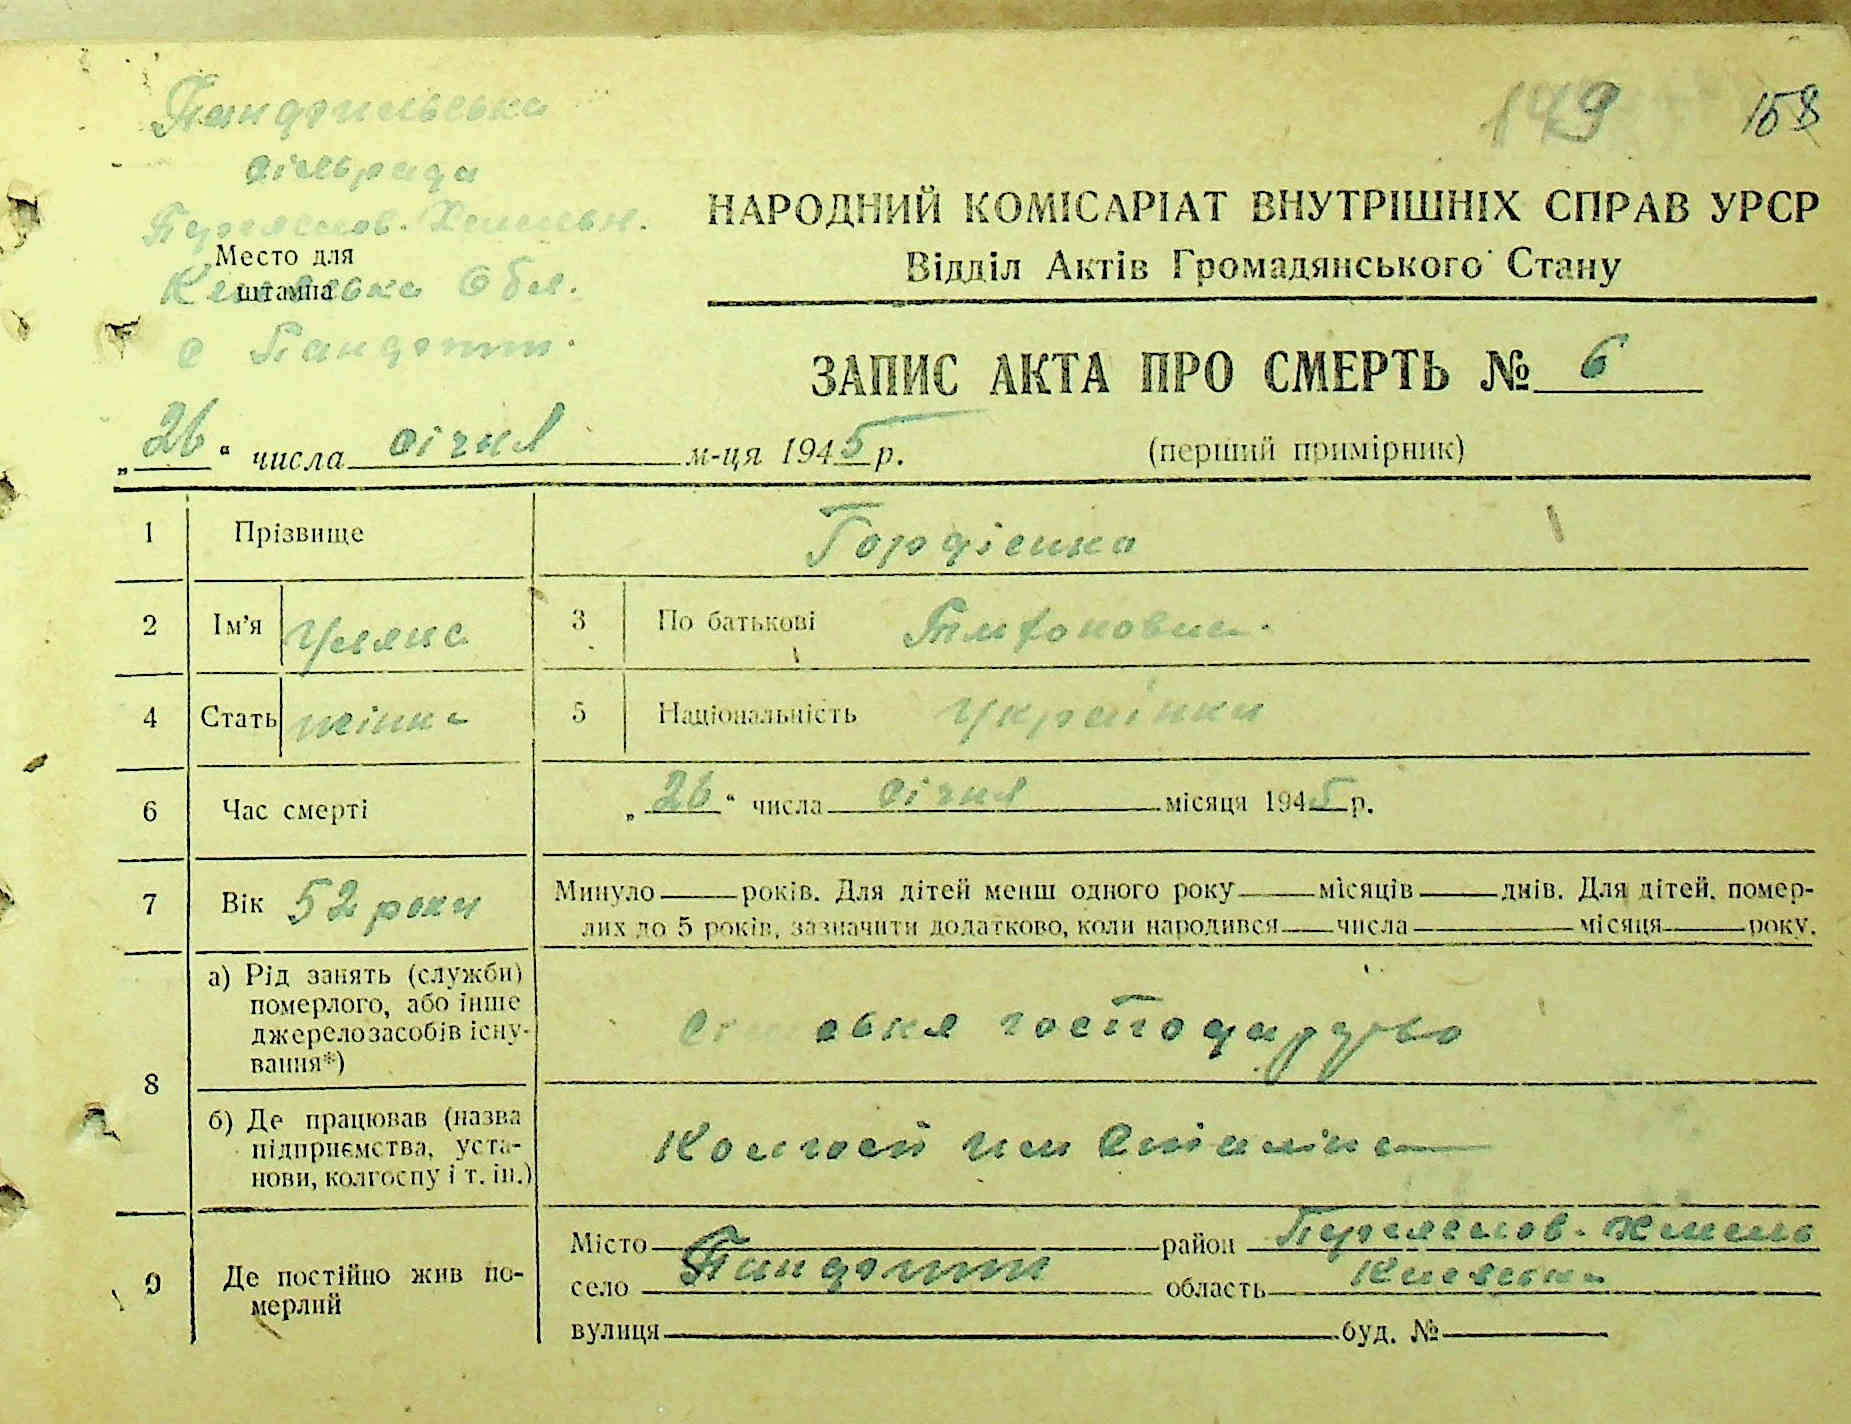 149 158
Пандопильська
сільрада
Переяслов. Хмельн.
Место для
штампа
Київська Обл.
с
НАРОДНИЙ КОМІСАРІАТ ВНУТРІШНІХ СПРАВ УРСР
Відділ Актів Громадянського Стану
ЗАПИС АКТА ПРО СМЕРТЬ № 6
„26" числа січня м-ця 1945 р.
(перший примірник)
1 Прізвище Гордієнко
2 Ім'я Уляна 3 По батькові
4 Стать жінка 5 Національність Українка
6 Час смерті „26" числа січня місяця 1945 р.
7 Вік 52 роки Минуло років. Для дітей менш одного року місяців днів. Для дітей, помер-
лих до 5 років, зазначити додатково, коли народився числа місяця року.
8 а) Рід занять (служби)
померлого, або інше
джерело засобів існу-
вання*)
господарство
б) Де працював (назва
підприємства, уста-
нови, колгоспу і т. ін.)
Колгосп им Сталіна
9 Де постійно жив по-
мерлий
Місто район Переяслов-Хмель
село область Київська
вулиця буд. №